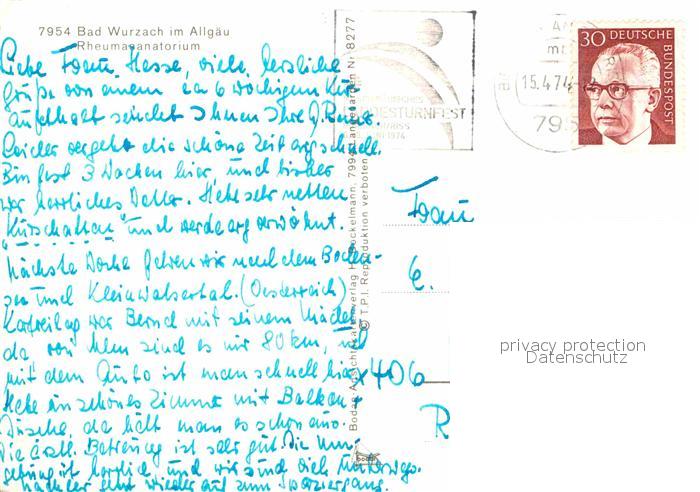 7954 Bad Wurzach im Allgäu
Rheumasanatorium
Liebe Frau Hesse, viele herzliche
Grüße von einem ca 6 wöchigen Kur-
aufenthalt sendet Ihnen Ihre
Leider vergeht die schöne Zeit arg schnell.
Bin fast 3 Wochen hier, und bisher
war herrliches Wetter. Habe sehr netten
"Kurschatten" und werde arg verwöhnt.
Nächste Woche fahren wir nach dem Boden-
see und Kleinwalsertal. (Oesterreich)
Karfreitag war Bernd mit seinem Mädel
da von Ulm sind es nur 80 km, und
mit dem Auto ist man schnell hier
Habe ein schönes Zimmer mit Balkon +
Dusche, da hält man es schon aus.
Die ärztl. Betreuung ist sehr gut. Die Um-
gebung ist herrlich und wir sind viel unterwegs.
nachher geht wieder auf zum Spaziergang.
Frau
E.
406
R
Bodan-Ansichtskartenverlag
Nr 8277
© T.P.I. Reproduktion verboten
DESTURNFEST
1974
15.4.74
795
30 DEUTSCHE
BUNDESPOST
privacy protection
Datenschutz